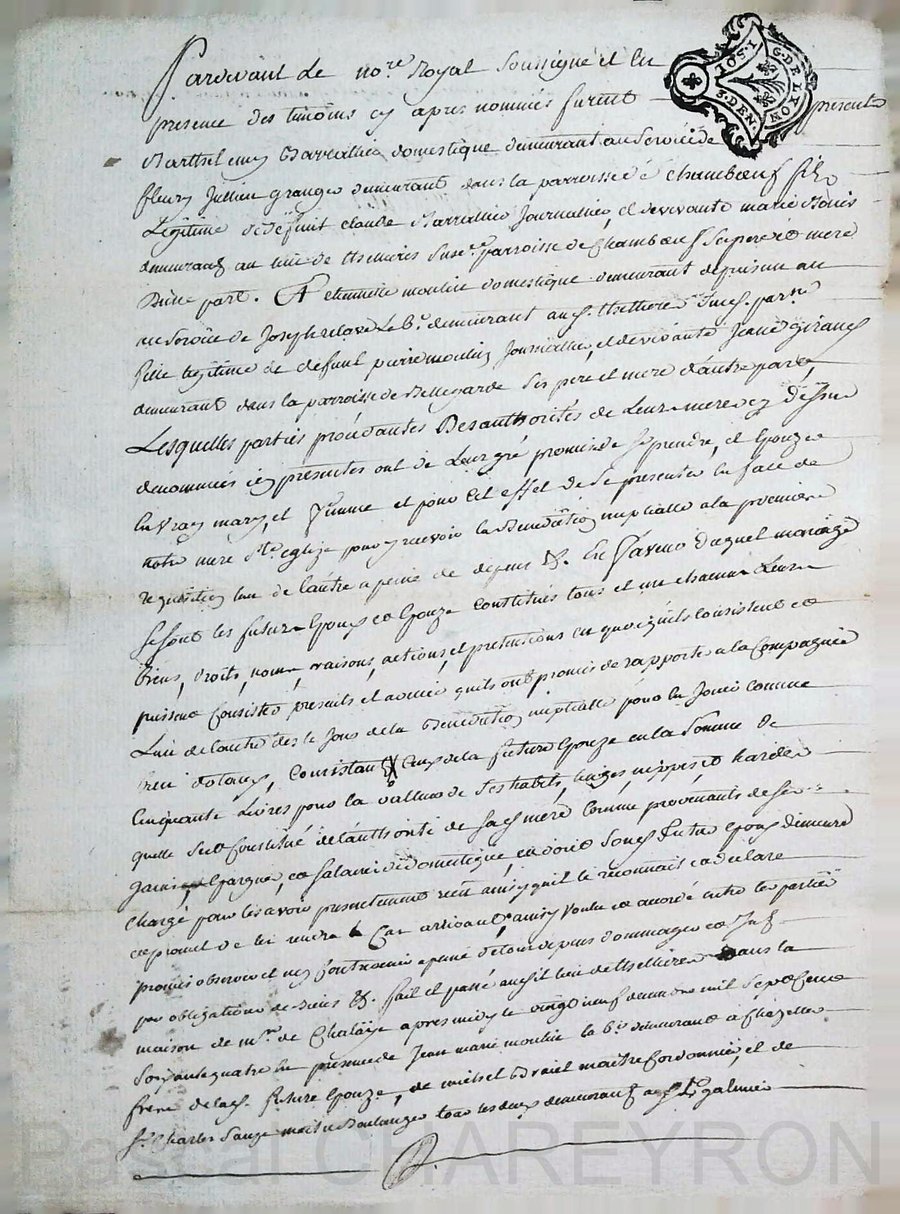 Pardevant Le no.re Royal Soussigné et En
G. DE LYON
10 S. I
3. DEN.
presence des temoins cy apres nommés furent presents
Barthelemy domestique demeurant au Service de
fleury Jullien granger demeurant dans la parroisse de Chambœuf fils
Légitime de deffunt claude Journallier, et de vivante marie
demeurant au lieu de parroisse de Chambœuf Ses pere et mere
D'une part. Et moulin domestique demeurant depuis un an
au Service de Joseph demeurant
fille legitime de defunt pierre moulin Journallier, et de vivante Jeane
demeurant dans la parroisse de Bellegarde Ses pere et mere d'autre part,
Lesquelles parties procédantes De authorités de Leur mere cy dessus
denommées icy presentes ont de Leur gré promis de Se prendre, et Epouzer
En vray mary, et femme et pour cet effet de Se presenter En face de
notre mere Ste. eglise pour y recevoir la Benediction nuptialle a la premiere
requisition l'un de l'autre a peine de depens &. En faveur duquel mariage
Se sont les futurs Epoux et Epouze Constitués tous et un chacun Leurs
biens, droits, noms, raisons, actions, et pretentions en quoy qu'ils consistent et
puissent Consister, presents et avenir qu'ils ont promis de rapporter a la Compagnie
L'un de l'autre des le Jour de la Benediction nuptialle pour En Jouir comme
bien dotaux, Consistant Ceux de la future Epouze en la Somme de
Cinquante Livres pour la valleur de Ses habits, linges, nippes, et hardes
quelle Se Constitue de l'authorité de Sa mere Comme provenants de Ses
gains, Epargne, et Salaire de domestique, et dont Epoux demeure
Chargé pour les avoir presentement reçu ainsy qu'il le reconnait et declare
et promet de les rendre Car ainsy Voulu et accordé entre les parties
promis observer et ny Contrevenir a peine de tous depens dommages et Int.
par obligations de biens &. fait et passé au lieu de dans la
maison de apres midy le vingt neuf mil Sept Cents
Soixante quatre En presence de Jean marie moulin demeurant a Chazelles
frere de la future Epouze, de maitre Cordonnier, et de
Sr. Charles maitre Boulanger tous les deux demeurant a St galmier
Pascal CHAREYRON